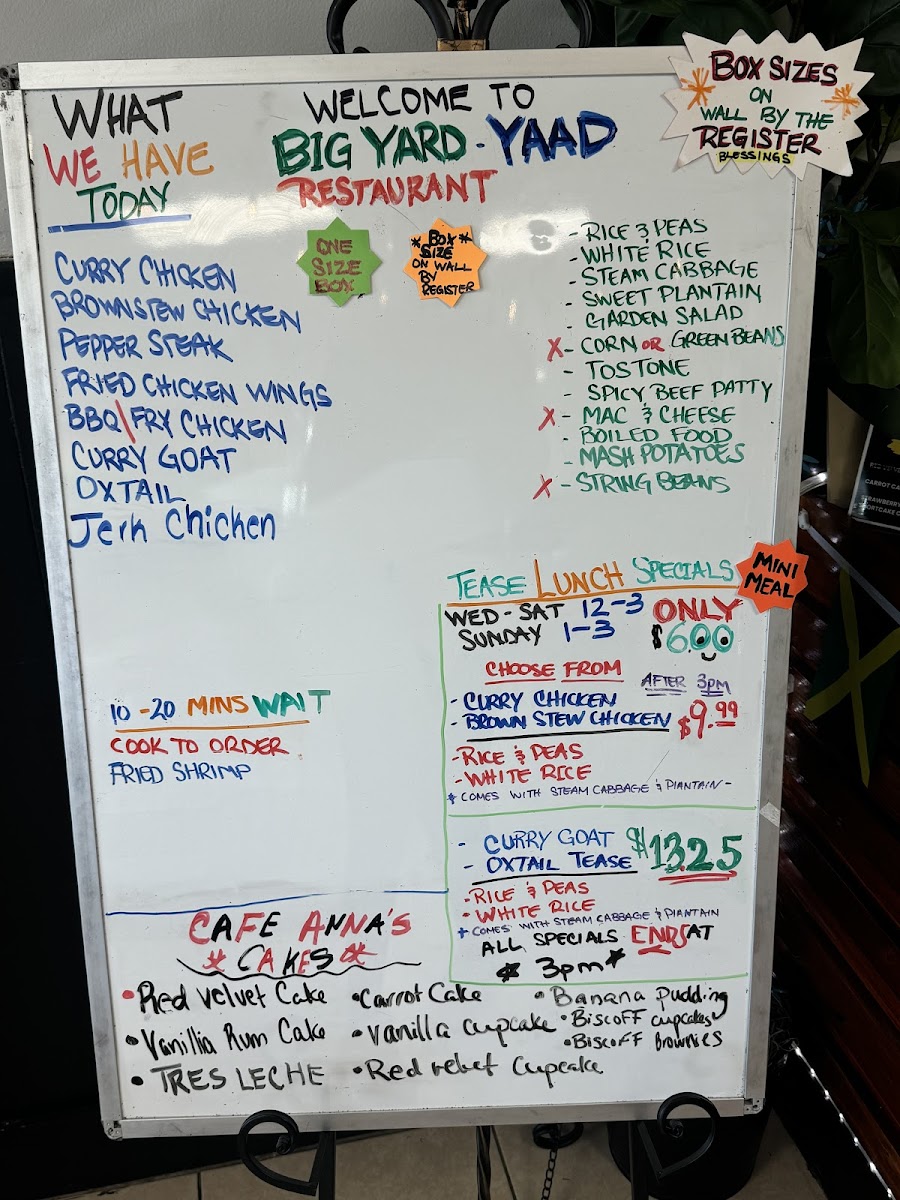 WHAT
WE HAVE
TODAY
WELCOME TO
BIG YARD - YAAD
RESTAURANT
BOX SIZES
ON
WALL BY THE
REGISTER
BLESSINGS
ONE
SIZE
BOX
*BOX*
SIZE
ON WALL
BY
REGISTER
CURRY CHICKEN
BROWNSTEW CHICKEN
PEPPER STEAK
FRIED CHICKEN WINGS
BBQ\FRY CHICKEN
CURRY GOAT
OXTAIL
Jerk Chicken
- RICE & PEAS
- WHITE RICE
- STEAM CABBAGE
- SWEET PLANTAIN
- GARDEN SALAD
X - CORN OR GREEN BEANS
- TOSTONE
- SPICY BEEF PATTY
X - MAC & CHEESE
- BOILED FOOD
- MASH POTATOES
X - STRING BEANS
10-20 MINS WAIT
COOK TO ORDER
FRIED SHRIMP
TEASE LUNCH SPECIALS
MINI
MEAL
WED-SAT 12-3 ONLY
SUNDAY 1-3 $6.00
CHOOSE FROM
AFTER 3PM
- CURRY CHICKEN
- BROWN STEW CHICKEN $9.99
- RICE & PEAS
- WHITE RICE
* COMES WITH STEAM CABBAGE & PLANTAIN -
- CURRY GOAT $13.25
- OXTAIL TEASE
- RICE & PEAS
- WHITE RICE
* COMES WITH STEAM CABBAGE & PLANTAIN
ALL SPECIALS ENDS AT
* 3pm *
CAFE ANNA'S
* CAKES *
• Red Velvet Cake
• Vanillia Rum Cake
• TRES LECHE
• Carrot Cake
• Vanilla cupcake
• Red velvet Cupcake
• Banana pudding
• BiscoFF cupcakes
• BiscoFF Brownies
CARROT CA